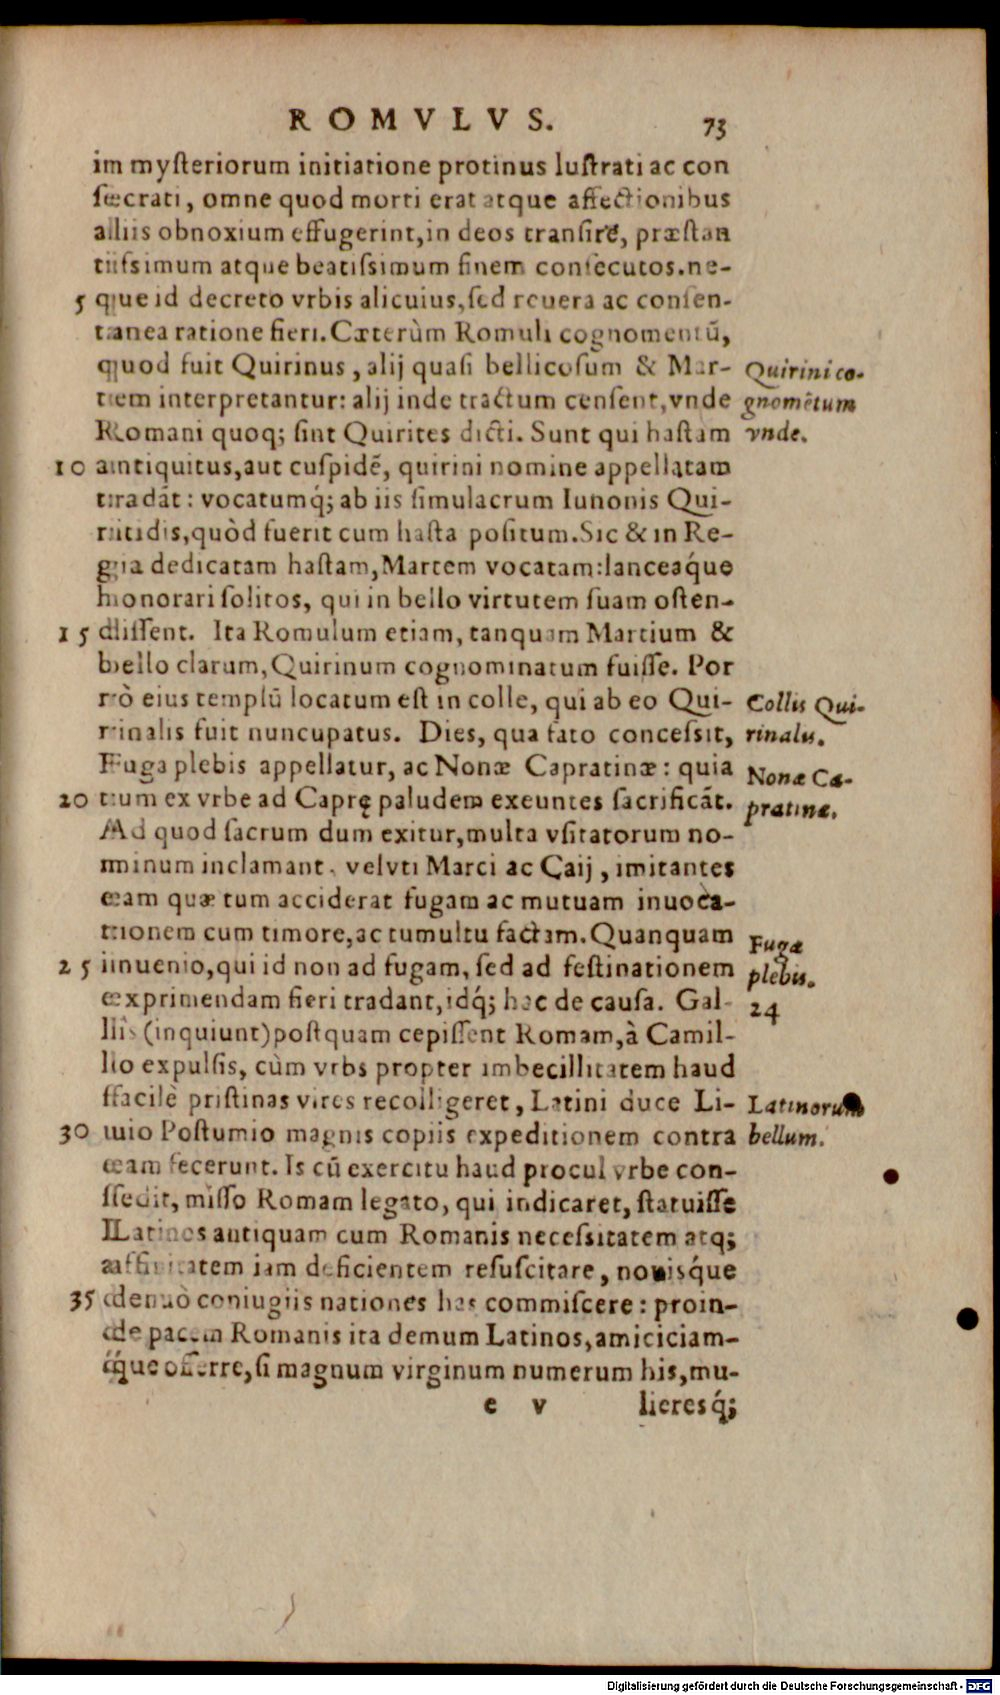 ROMVLVS. 73
im mysteriorum initiatione protinus lustrati ac con
secrati, omne quod morti erat atque affectionibus
aliis obnoxium effugerint, in deos transire, præstan
tissimum atque beatissimum finem consecutos. ne-
5 que id decreto vrbis alicuius, sed reuera ac consen-
tanea ratione fieri. Cæterùm Romuli cognomentū,
quod fuit Quirinus, alij quasi bellicosum & Mar- Quirini co-
tiem interpretantur: alij inde tractum censent, vnde gnomētum
Romani quoq; sint Quirites dicti. Sunt qui hastam vnde.
10 antiquitus, aut cuspidē, quirini nomine appellatam
tradāt: vocatumq́; ab iis simulacrum Iunonis Qui-
ritidis, quòd fuerit cum hasta positum. Sic & in Re-
gia dedicatam hastam, Martem vocatam: lanceaq́ue
honorari solitos, qui in bello virtutem suam osten-
15 dissent. Ita Romulum etiam, tanquam Martium &
bello clarum, Quirinum cognominatum fuisse. Por
rò eius templū locatum est in colle, qui ab eo Qui- Collis Qui-
rinalis fuit nuncupatus. Dies, qua fato concessit, rinalis.
Fuga plebis appellatur, ac Nonæ Capratinæ: quia Nonæ Ca-
20 tum ex vrbe ad Caprę paludem exeuntes sacrificāt. pratinæ.
Ad quod sacrum dum exitur, multa vsitatorum no-
minum inclamant, velvti Marci ac Caij, imitantes
eam quæ tum acciderat fugam ac mutuam inuoca-
tionem cum timore, ac tumultu factam. Quanquam Fuga
25 inuenio, qui id non ad fugam, sed ad festinationem plebis.
exprimendam fieri tradant, idq́; hac de causa. Gal- 24
lis (inquiunt) postquam cepissent Romam, à Camil-
lo expulsis, cùm vrbs propter imbecillitatem haud
facilè pristinas vires recolligeret, Latini duce Li- Latinorum
30 uio Postumio magnis copiis expeditionem contra bellum.
eam fecerunt. Is cū exercitu haud procul vrbe con-
sedit, misso Romam legato, qui indicaret, statuisse
Latinos antiquam cum Romanis necessitatem atq;
affinitatem iam deficientem resuscitare, nouisq́ue
35 denuò coniugiis nationes has commiscere: proin-
de pacem Romanis ita demum Latinos, amiciciam-
q́ue offerre, si magnum virginum numerum his, mu-
e v lieresq́;
Digitalisierung gefördert durch die Deutsche Forschungsgemeinschaft - DFG